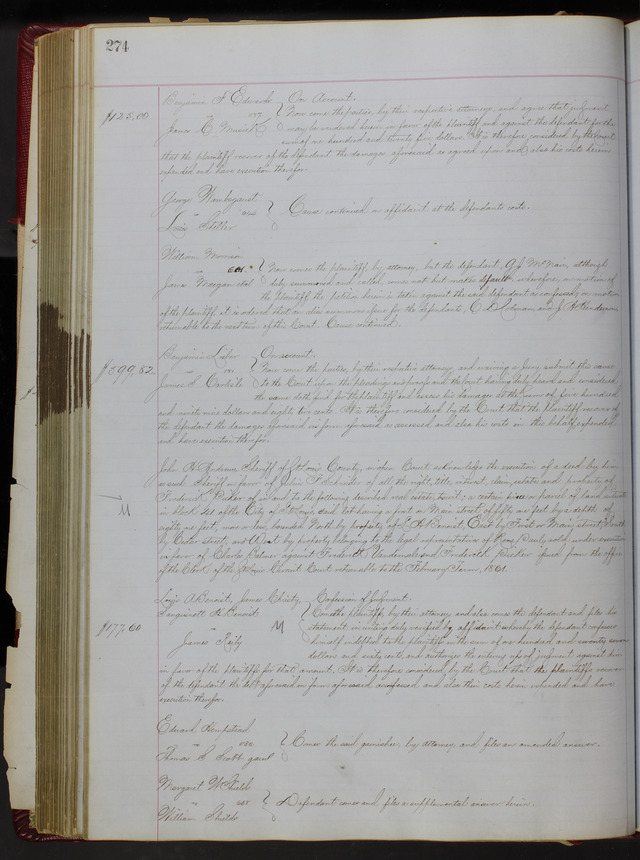 274
Benjamin F Edwards } On Account.
$125.00 vs } Now come the parties, by their respective attorneys, and agree that judgment
James C } may be rendered herein in favor of the plaintiff and against the defendant for the
sum of one hundred and twenty five dollars. It is therefore considered by the Court
that the plaintiff recover of the defendant the damages aforesaid as agreed upon and also his costs herein
expended and have execution therefor.
George
vs } Cause continued on affidavit at the defendants costs.
Louis
William
vs } Now comes the plaintiff, by attorney, but the defendant, A J McNair, although
duly summoned and called, comes not but makes default, wherefore, on motion of
the plaintiff the petition herein is taken against the said defendant as confessed, and on motion
of the plaintiff it is ordered that an alias summons issue for the defendants, and J Henderson
returnable to the next term of this Court. Cause continued.
Benjamin } On account.
$599.82. vs } Now come the parties, by their respective attorneys, and waiving a jury, submit this cause
James S Carlisle } to the Court upon the pleadings and proofs and the Court having duly heard and considered
the same doth find for the plaintiff and assess his damages at the sum of five hundred
and ninety nine dollars and eighty two cents. It is therefore considered by the Court that the plaintiff recover of
the defendant the damages aforesaid in form aforesaid assessed and also his costs in this behalf expended,
and have execution therefor.
John H Andrews Sheriff of St Louis County, in open Court acknowledges the execution of a deed by him
as such Sheriff in favor of John F of all the right, title, interest, claim, estate and property of
Frederick Becker of in and to the following described real estate, to wit; a certain piece or parcel of land, situate
in block of the City of St Louis and lot having a front on Main street of fifty six feet by a depth of
eighty six feet, more or less, bounded North by property of Bennoist, East by Front or Main street, South
by street, and West by property belonging to the legal representatives of sold under execution
in favor of Charles against Frederick and Frederick Becker issued from the office
of the Clerk of the St Louis Circuit Court returnable to the February Term, 1861.
Louis A Benoist, James Christy, } Confession of Judgment.
Sanguinett H Benoist } Come the plaintiffs, by their attorney and also comes the defendant and files his
$177.60 vs } statement in writing duly verified by affidavit whereby the defendant confesses
James Reily } himself indebted to the plaintiffs in the sum of one hundred and seventy seven
dollars and sixty cents, and authorizes the entering up of judgment against him
in favor of the plaintiffs for that amount. It is therefore considered by the Court that the plaintiffs recover
of the defendant the debt aforesaid in form aforesaid confessed and also their costs herein expended and have
execution therefor.
Edward Hempstead
vs } Comes the said garnishee, by attorney and files an amended answer.
Thomas S Scott garn
Margaret W Shields
vs } Defendant comes and files a supplemental answer herein.
William Shields